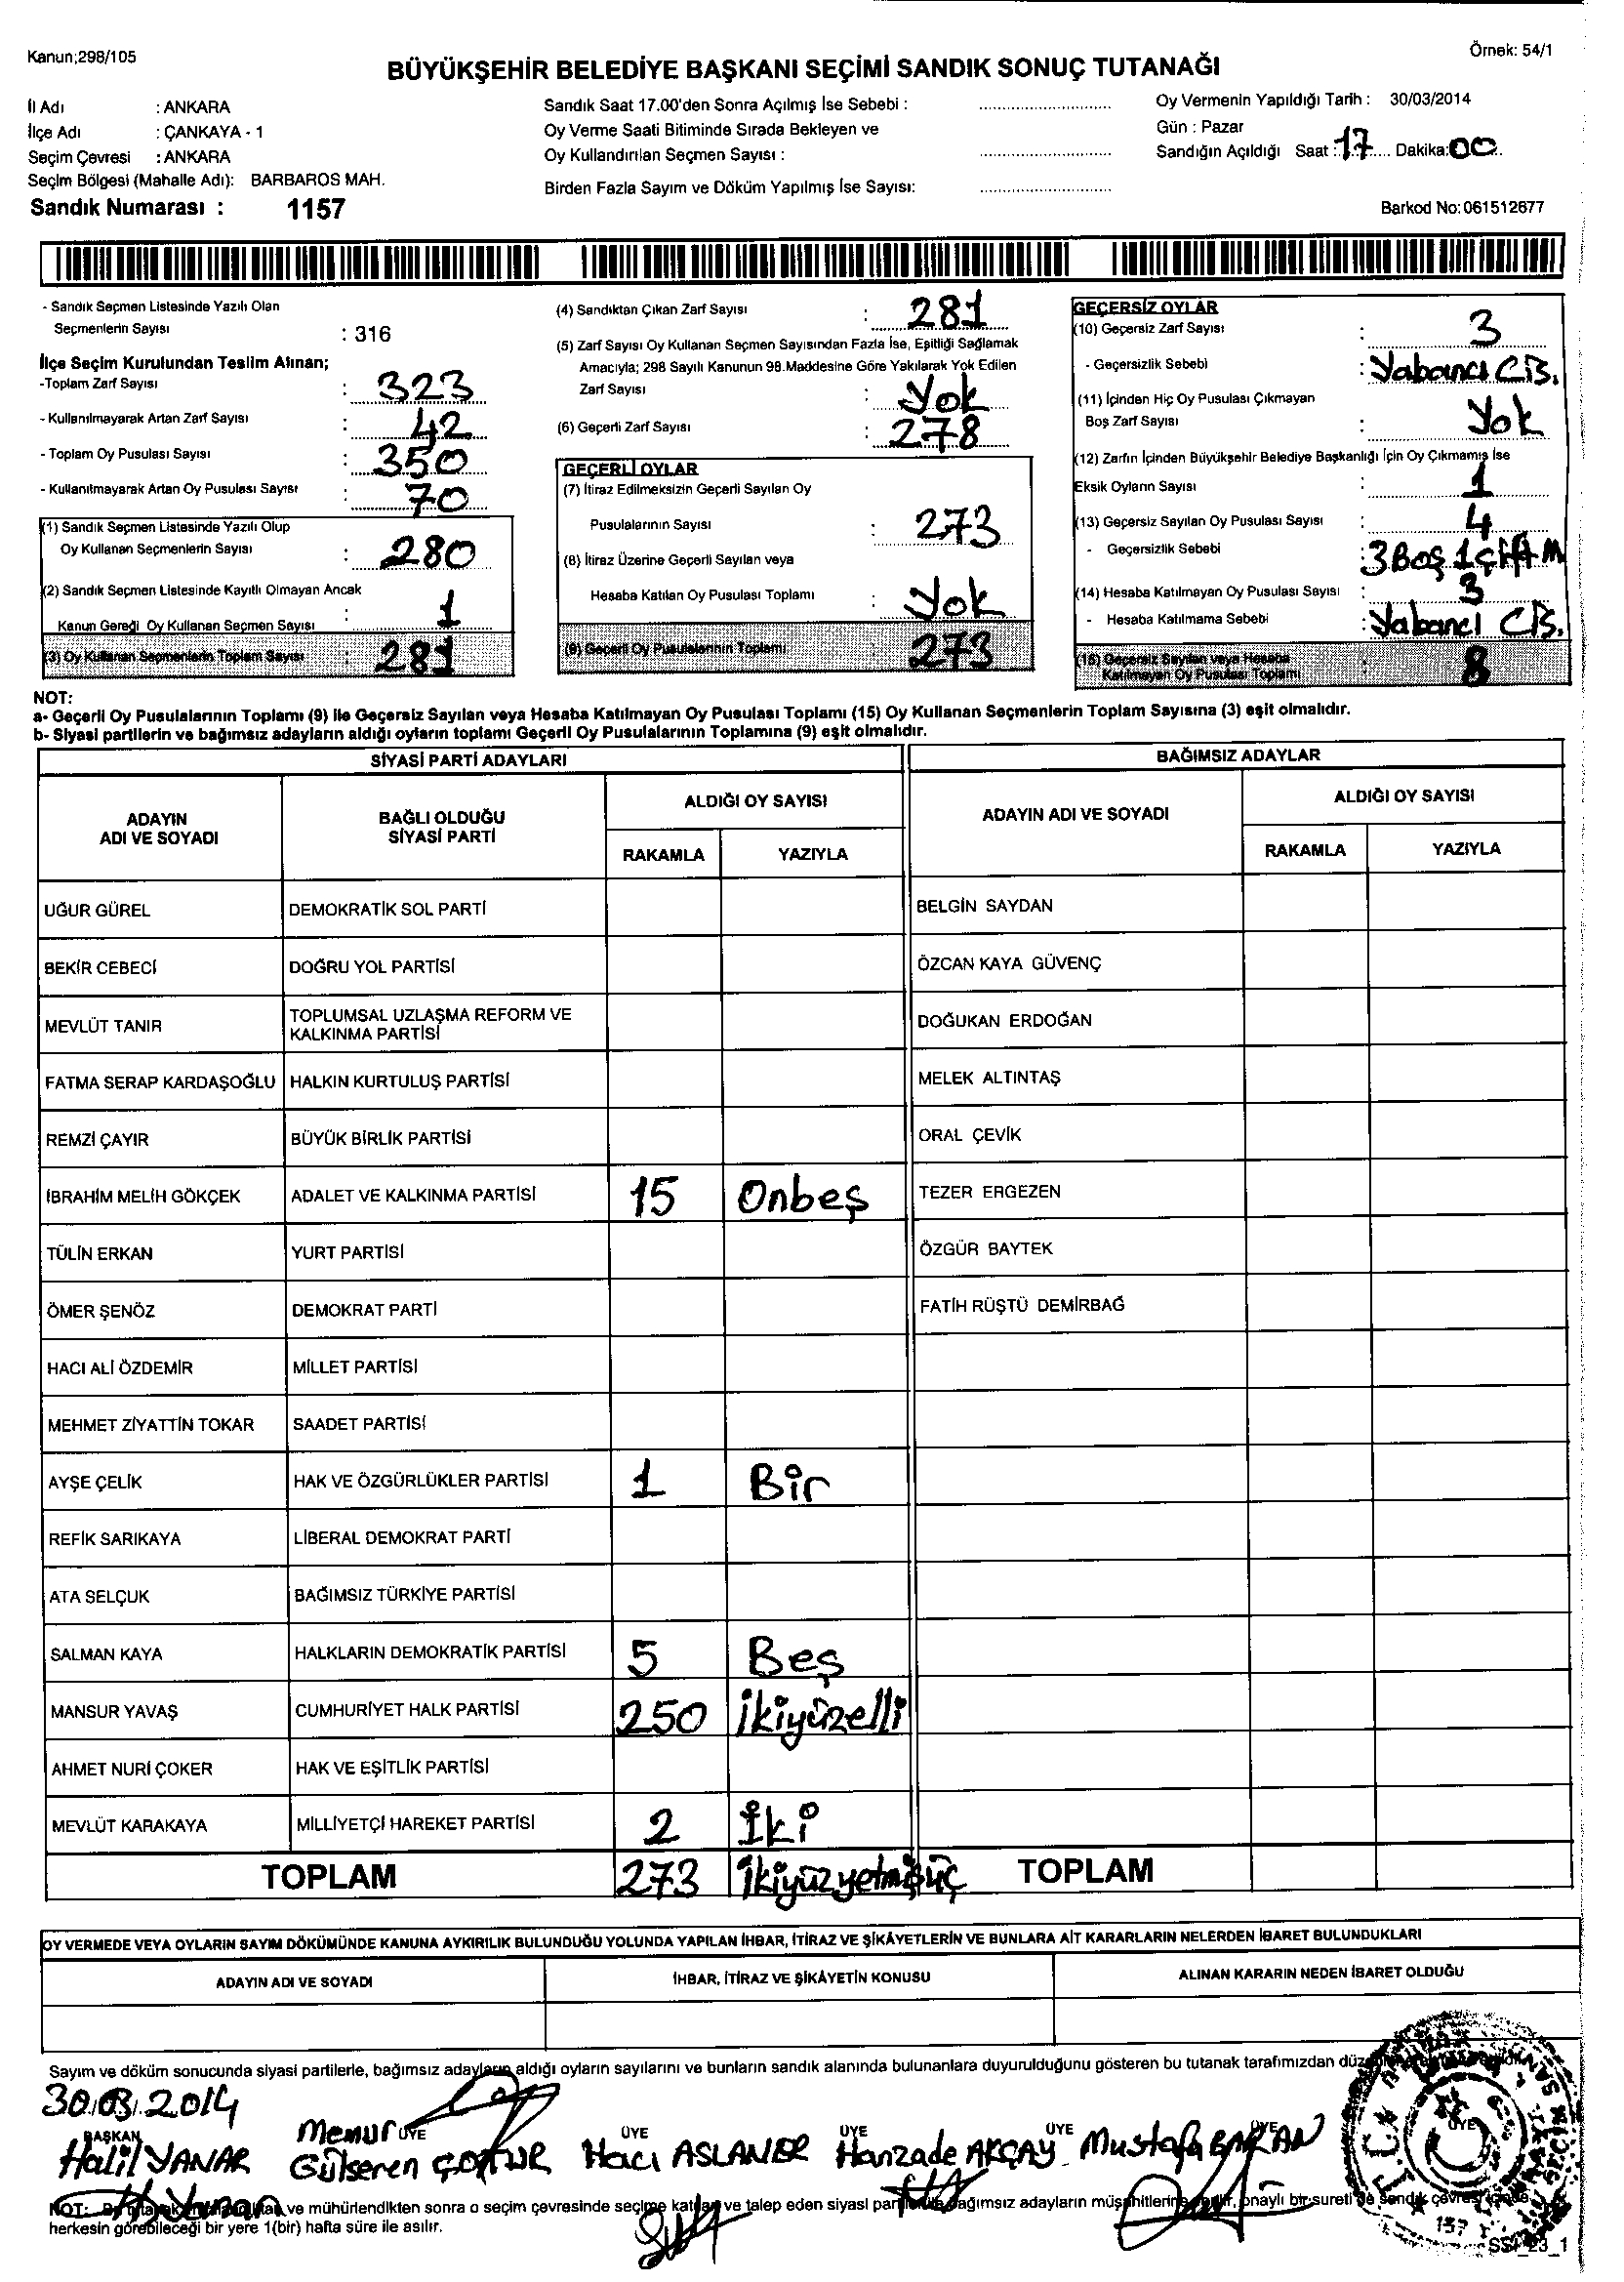 Kanun;298/105
Örnek: 54/1
BÜYÜKŞEHİR BELEDİYE BAŞKANI SEÇİMİ SANDIK SONUÇ TUTANAĞI
İl Adı : ANKARA
İlçe Adı : ÇANKAYA - 1
Seçim Çevresi : ANKARA
Seçim Bölgesi (Mahalle Adı): BARBAROS MAH.
Sandık Numarası : 1157
Sandık Saat 17.00'den Sonra Açılmış İse Sebebi :
Oy Verme Saati Bitiminde Sırada Bekleyen ve
Oy Kullandırılan Seçmen Sayısı :
Birden Fazla Sayım ve Döküm Yapılmış İse Sayısı:
Oy Vermenin Yapıldığı Tarih : 30/03/2014
Gün : Pazar
Sandığın Açıldığı Saat : 17 Dakika: 00
Barkod No: 061512677
- Sandık Seçmen Listesinde Yazılı Olan
Seçmenlerin Sayısı : 316
İlçe Seçim Kurulundan Teslim Alınan;
-Toplam Zarf Sayısı : 323
- Kullanılmayarak Artan Zarf Sayısı : 42
- Toplam Oy Pusulası Sayısı : 350
- Kullanılmayarak Artan Oy Pusulası Sayısı : 70
(1) Sandık Seçmen Listesinde Yazılı Olup
Oy Kullanan Seçmenlerin Sayısı : 280
(2) Sandık Seçmen Listesinde Kayıtlı Olmayan Ancak
Kanun Gereği Oy Kullanan Seçmen Sayısı : 1
(3) Oy Kullanan Seçmenlerin Toplam Sayısı : 281
(4) Sandıktan Çıkan Zarf Sayısı : 281
(5) Zarf Sayısı Oy Kullanan Seçmen Sayısından Fazla İse, Eşitliği Sağlamak
Amacıyla; 298 Sayılı Kanunun 98.Maddesine Göre Yakılarak Yok Edilen
Zarf Sayısı : Yok
(6) Geçerli Zarf Sayısı : 278
GEÇERLİ OYLAR
(7) İtiraz Edilmeksizin Geçerli Sayılan Oy
Pusulalarının Sayısı : 273
(8) İtiraz Üzerine Geçerli Sayılan veya
Hesaba Katılan Oy Pusulası Toplamı : Yok
(9) Geçerli Oy Pusulalarının Toplamı : 273
GEÇERSİZ OYLAR
(10) Geçersiz Zarf Sayısı : 3
- Geçersizlik Sebebi : Yabancı CİS.
(11) İçinden Hiç Oy Pusulası Çıkmayan
Boş Zarf Sayısı : Yok
(12) Zarfın İçinden Büyükşehir Belediye Başkanlığı İçin Oy Çıkmamış İse
Eksik Oyların Sayısı : 1
(13) Geçersiz Sayılan Oy Pusulası Sayısı : 4
- Geçersizlik Sebebi : 3 Boş 1 ÇİFT M
(14) Hesaba Katılmayan Oy Pusulası Sayısı : 3
- Hesaba Katılmama Sebebi : Yabancı CİS.
(15) Geçersiz Sayılan veya Hesaba
Katılmayan Oy Pusulası Toplamı : 8
NOT:
a- Geçerli Oy Pusulalarının Toplamı (9) ile Geçersiz Sayılan veya Hesaba Katılmayan Oy Pusulası Toplamı (15) Oy Kullanan Seçmenlerin Toplam Sayısına (3) eşit olmalıdır.
b- Siyasi partilerin ve bağımsız adayların aldığı oyların toplamı Geçerli Oy Pusulalarının Toplamına (9) eşit olmalıdır.
SİYASİ PARTİ ADAYLARI
ADAYIN ADI VE SOYADI
BAĞLI OLDUĞU SİYASİ PARTİ
ALDIĞI OY SAYISI
RAKAMLA YAZIYLA
UĞUR GÜREL DEMOKRATİK SOL PARTİ
BEKİR CEBECİ DOĞRU YOL PARTİSİ
MEVLÜT TANIR TOPLUMSAL UZLAŞMA REFORM VE
KALKINMA PARTİSİ
FATMA SERAP KARDAŞOĞLU HALKIN KURTULUŞ PARTİSİ
REMZİ ÇAYIR BÜYÜK BİRLİK PARTİSİ
İBRAHİM MELİH GÖKÇEK ADALET VE KALKINMA PARTİSİ 15 Onbeş
TÜLİN ERKAN YURT PARTİSİ
ÖMER ŞENÖZ DEMOKRAT PARTİ
HACI ALİ ÖZDEMİR MİLLET PARTİSİ
MEHMET ZİYATTİN TOKAR SAADET PARTİSİ
AYŞE ÇELİK HAK VE ÖZGÜRLÜKLER PARTİSİ 1 Bir
REFİK SARIKAYA LİBERAL DEMOKRAT PARTİ
ATA SELÇUK BAĞIMSIZ TÜRKİYE PARTİSİ
SALMAN KAYA HALKLARIN DEMOKRATİK PARTİSİ 5 Beş
MANSUR YAVAŞ CUMHURİYET HALK PARTİSİ 250 İkiyüzelli
AHMET NURİ ÇOKER HAK VE EŞİTLİK PARTİSİ
MEVLÜT KARAKAYA MİLLİYETÇİ HAREKET PARTİSİ 2 İki
TOPLAM 273 İkiyüzyetmişüç
BAĞIMSIZ ADAYLAR
ADAYIN ADI VE SOYADI
ALDIĞI OY SAYISI
RAKAMLA YAZIYLA
BELGİN SAYDAN
ÖZCAN KAYA GÜVENÇ
DOĞUKAN ERDOĞAN
MELEK ALTINTAŞ
ORAL ÇEVİK
TEZER ERGEZEN
ÖZGÜR BAYTEK
FATİH RÜŞTÜ DEMİRBAĞ
TOPLAM
OY VERMEDE VEYA OYLARIN SAYIM DÖKÜMÜNDE KANUNA AYKIRILIK BULUNDUĞU YOLUNDA YAPILAN İHBAR, İTİRAZ VE ŞİKÂYETLERİN VE BUNLARA AİT KARARLARIN NELERDEN İBARET BULUNDUKLARI
ADAYIN ADI VE SOYADI
İHBAR, İTİRAZ VE ŞİKÂYETİN KONUSU
ALINAN KARARIN NEDEN İBARET OLDUĞU
Sayım ve döküm sonucunda siyasi partilerle, bağımsız adayların aldığı oyların sayılarını ve bunların sandık alanında bulunanlara duyurulduğunu gösteren bu tutanak tarafımızdan
30.03.2014
BAŞKAN Memur ÜYE ÜYE ÜYE ÜYE ÜYE ÜYE
Halil YANAR Gülseren Hacı ASLANER Hanzade AKÇAY Mustafa
NOT: ve mühürlendikten sonra o seçim çevresinde seçime katılan ve talep eden siyasi bağımsız adayların müşahitlerine onaylı bir sureti de sandık çevresi
herkesin görebileceği bir yere 1(bir) hafta süre ile asılır.